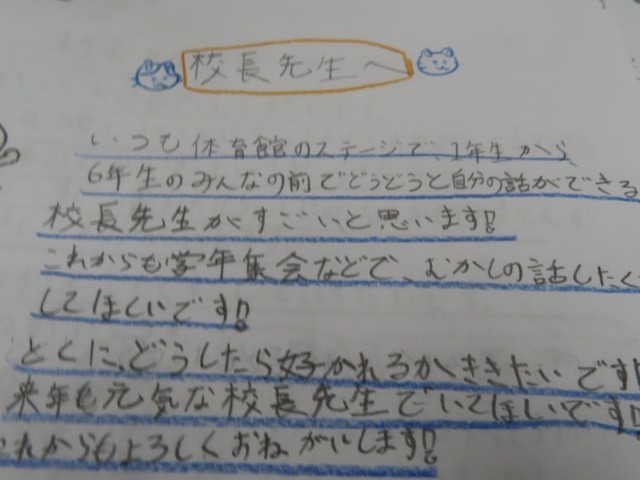 校長先生へ
いつも体育館のステージで、1年生から
6年生のみんなの前でどうどうと自分の話ができる
校長先生がすごいと思います!
これからも学年集会などで、むかしの話したく
してほしいです!
とくに、どうしたら好かれるかききたいです!
来年も元気な校長先生でいてほしいです!
これからもよろしくおねがいします!